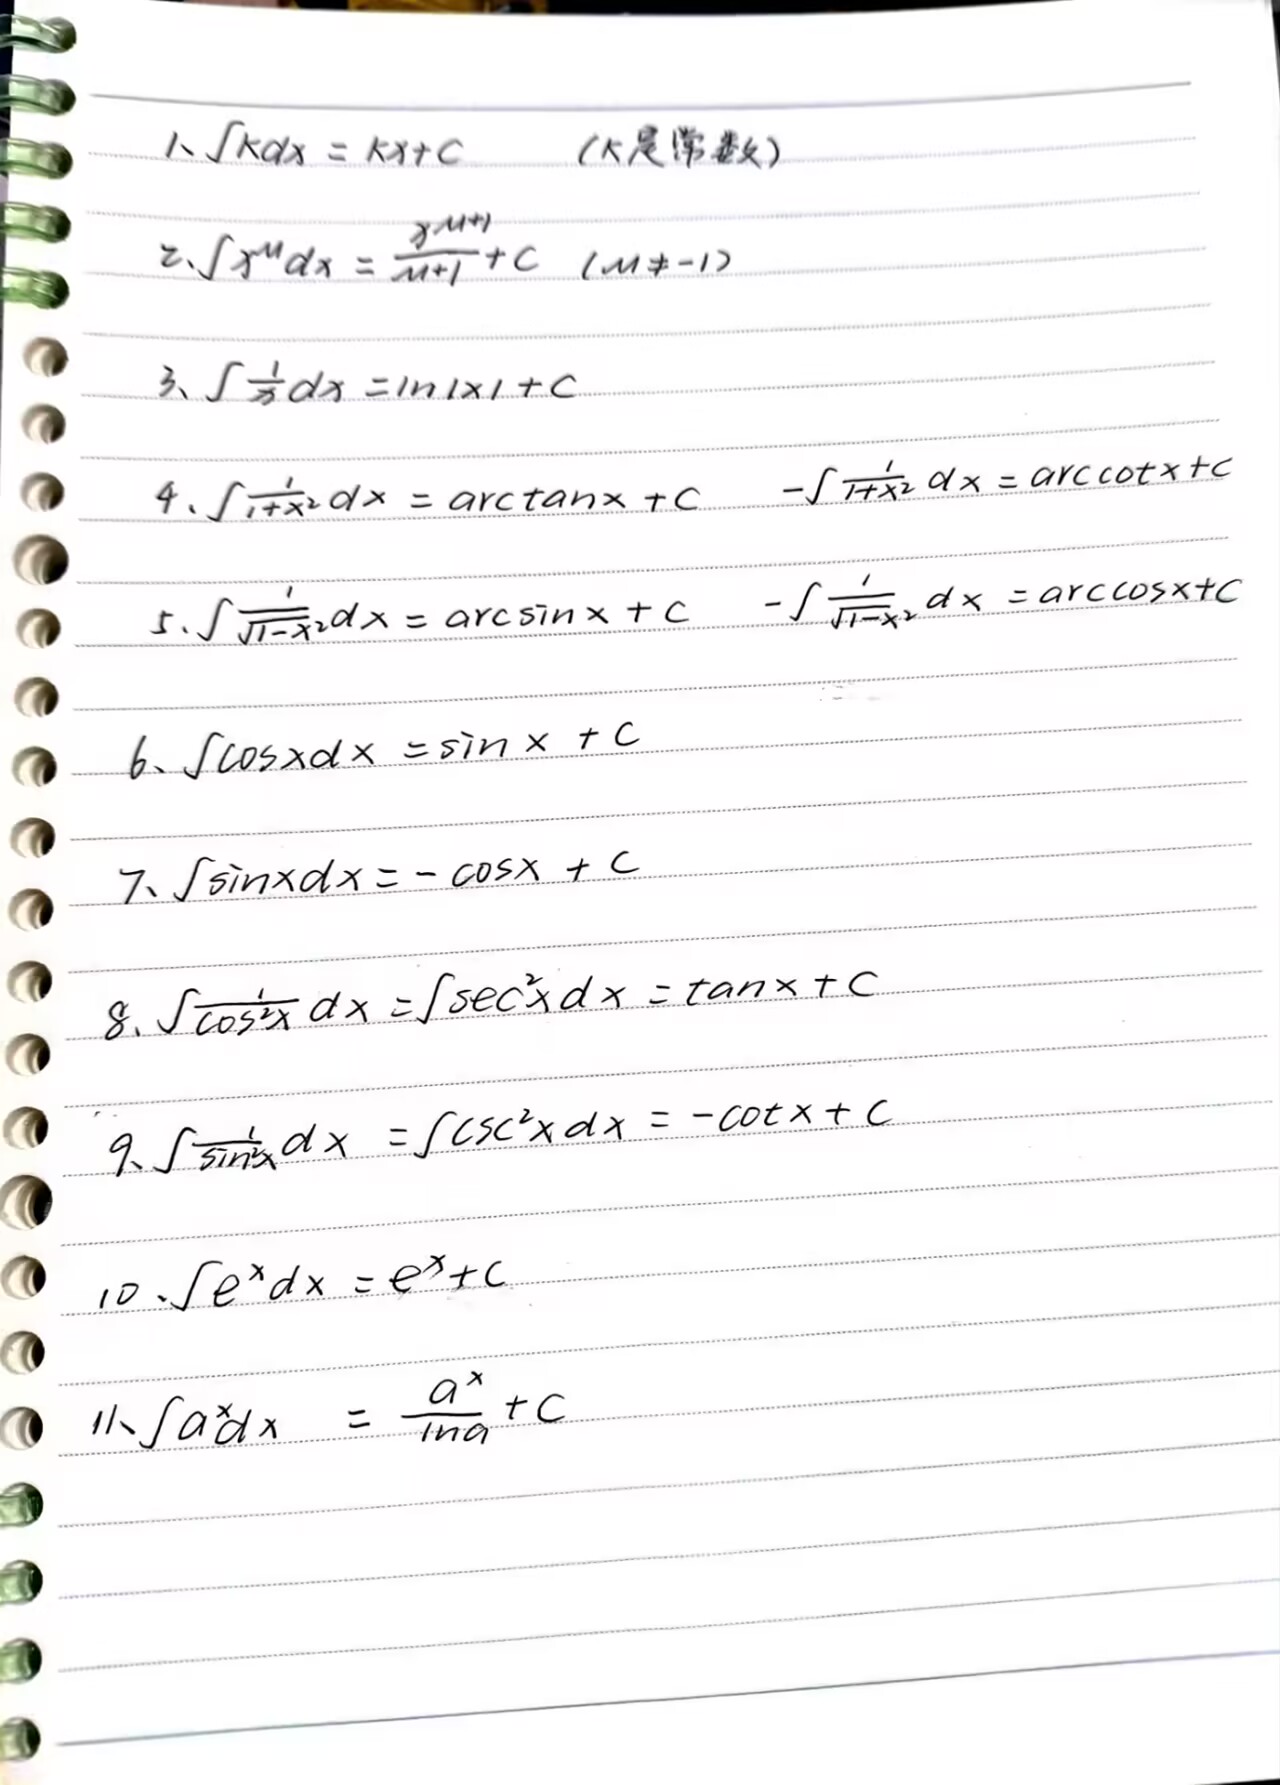 1、∫kdx = kx+C (k是常数)
2、∫x^μ dx = x^(μ+1)/(μ+1) + C (μ≠-1)
3、∫1/x dx = ln|x| + C
4、∫1/(1+x²) dx = arctanx + C -∫1/(1+x²) dx = arccotx+C
5、∫1/√(1-x²) dx = arcsinx + C -∫1/√(1-x²) dx = arccosx+C
6、∫cosxdx = sinx + C
7、∫sinxdx = -cosx + C
8、∫1/cos²x dx = ∫sec²xdx = tanx+C
9、∫1/sin²x dx = ∫csc²xdx = -cotx+C
10、∫e^x dx = e^x+C
11、∫a^x dx = a^x/lna + C